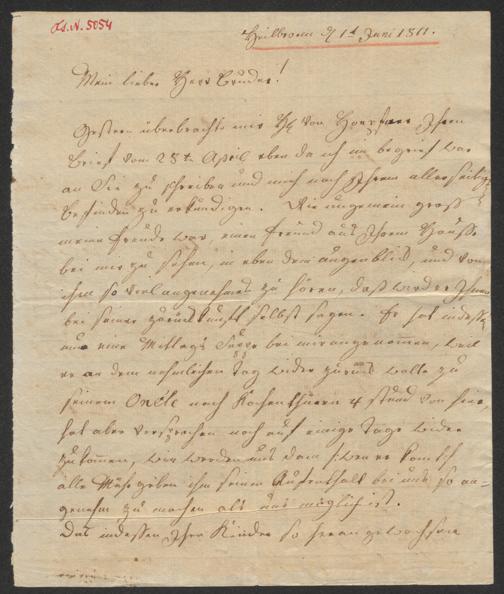 As. N. 5054
Heilbronn d 1t Juni 1811.
Mein lieber Herr Bruder!
Gestern überbrachte mir H. von Ihren
Brief vom 28tn April eben da ich im begrief war
an Sie zu schreiben und mich nach Ihrem allerseitigen
befinden zu erkundigen. Wie ungemein groß
meine freude war, einen freund aus Ihrem Hause
bei mir zu sehen, in eben dem augenblick, und von
ihm so viel angenehmes zu hören, das wird er Ihnen
bei seiner zurükkunft selbst sagen. Er hat indessen
nur eine Mittags Suppe bei mir angenommen, weil
er an dem nehmlichen Tag wider zurük wolte zu
seinem Oncle nach Kochenthürn 4 stund von hier,
hat aber versprochen noch auf einige Tage wider
zukommen, wir werden uns dann wen er komt
alle Mühe geben ihm seinen Aufenthalt bei uns so an-
genehm zu machen als uns möglich ist.
Das indessen Ihre Kinder so heran gewachsen